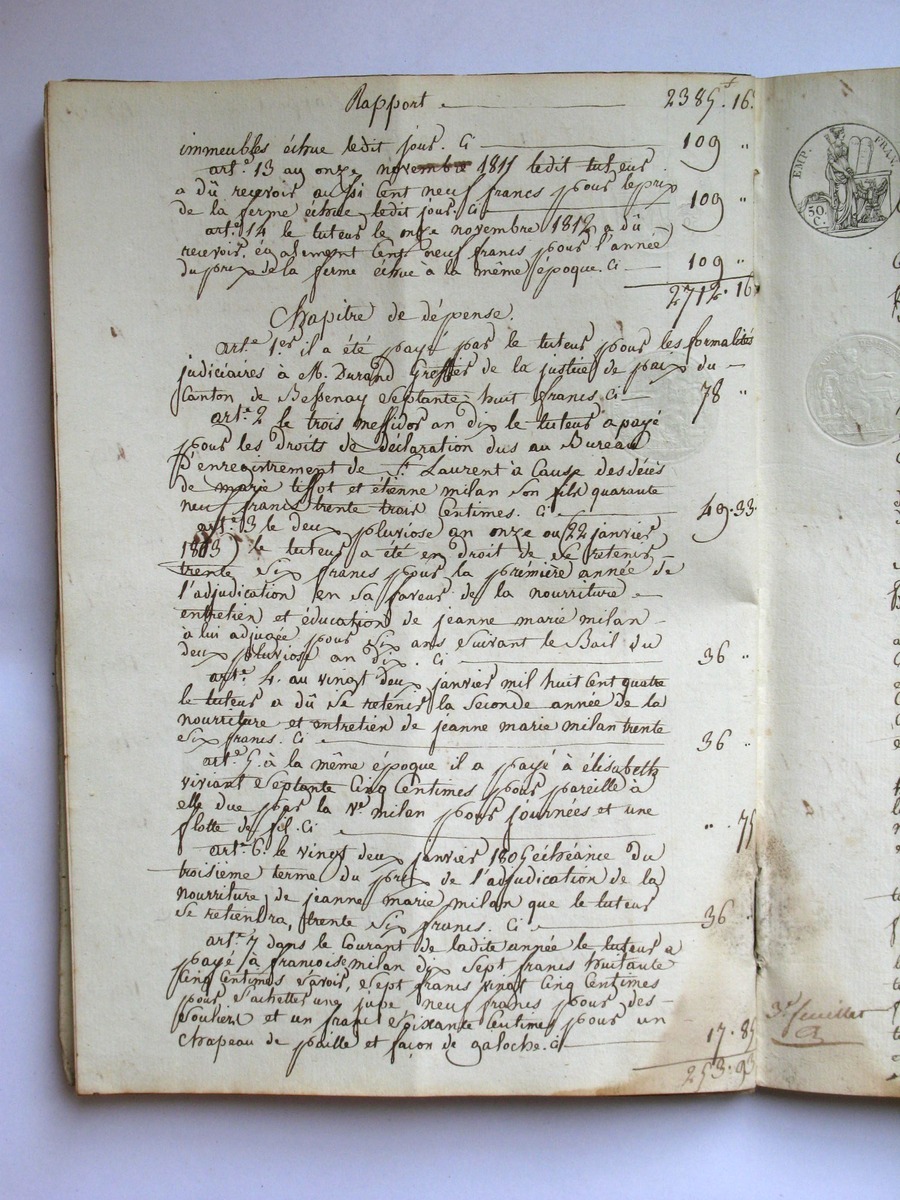 Rapport 2385.ᶠ 16.
immeubles échue ledit jour. Ci 109 "
art.ᵉ 13 au onze novembre 1811 ledit tuteur
a dû recevoir aussi Cent neuf francs pour le prix
de la ferme échue ledit jour. Ci 109 "
art.ᵉ 14 le tuteur le onze novembre 1812 a dû
recevoir également Cent neuf francs pour l'année
du prix de la ferme échue à la même époque. Ci 109 "
2712. 16
Chapitre de dépense.
art.ᵉ 1.ᵉʳ il a été payé par le tuteur pour les formalités
judiciaires à M. Durand Greffier de la justice de paix du
Canton de Bessenay Septante huit francs. Ci 78 "
art.ᵉ 2 le trois messidor an dix le tuteur a payé
pour les droits de déclaration dus au Bureau
d'enregistrement de S.ᵗ Laurent à Cause des décés
de marie tissot et étienne milan son fils quarante
neuf francs trente trois Centimes. Ci 49. 33.
art.ᵉ 3 le deux pluviose an onze ou (22 janvier
1803) le tuteur a été en droit de se retenir
trente Six francs pour la prémière année de
l'adjudication en sa faveur de la nourriture
entretien et éducation de jeanne marie milan
à lui adjugée pour Six ans suivant le Bail du
deux pluviose an dix. Ci 36 "
art.ᵉ 4. au vingt deux janvier mil huit Cent quatre
le tuteur a dû se retenir la Seconde année de la
nourriture et entretien de jeanne marie milan trente
Six francs. Ci 36 "
art.ᵉ 5. à la même époque il a payé à élisabeth
viviant Septante Cinq Centimes pour pareille à
elle due par la V.ᵉ milan pour journées et une
flotte de fil. Ci " 75
art.ᵉ 6. le vingt deux janvier 1805 échéance du
troisieme terme du prix de l'adjudication de la
nourriture de jeanne marie milan que le tuteur
se retiendra, trente Six francs. Ci 36 "
art.ᵉ 7 dans le Courant de ladite année le tuteur a
payé à francoise milan dix Sept francs huitante
Cinq Centimes Savoir, Sept francs vingt Cinq Centimes
pour S'achetter une jupe neuf francs pour des
Souliers et un franc Soixante Centimes pour un
Chapeau de paille et façon de galoche. Ci 17. 85
253. 93
EMP. FRAN
50. C.
3.ᵉ feuillet